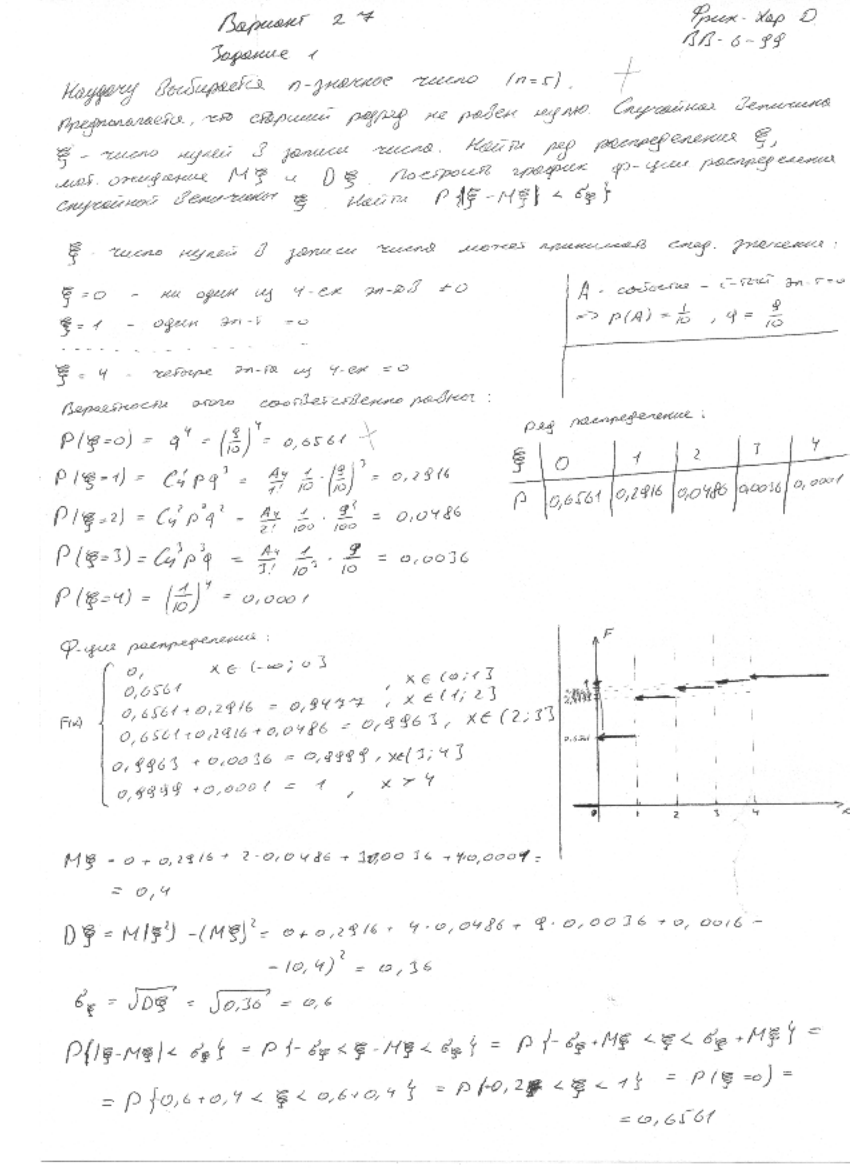 Вариант 27
Фрих-Хар Д.
Задание 1
ВВ-6-99
Наудачу выбирается n-значное число (n=5).
Предполагается, что старший разряд не равен нулю. Случайная величина
ξ - число нулей в записи числа. Найти ряд распределения ξ,
мат. ожидание Mξ и Dξ. Построить график ф-ции распределения
случайной величины ξ. Найти P{|ξ-Mξ| < σξ}
ξ - число нулей в записи числа может принимать след. значения:
ξ=0 - ни один из 4-ех эл-тов ≠0
ξ=1 - один эл-т =0
ξ=4 - четыре эл-та из 4-ех =0
A - событие - i-тый эл-т=0
=> P(A) = 1/10, q = 9/10
Вероятности этого соответственно равны:
P(ξ=0) = q⁴ = (9/10)⁴ = 0,6561
P(ξ=1) = C₄¹pq³ = A₄/1! 1/10·(9/10)³ = 0,2916
P(ξ=2) = C₄²p²q² = A₄/2! 1/100 · 9²/100 = 0,0486
P(ξ=3) = C₄³p³q = A₄/3! 1/10³ · 9/10 = 0,0036
P(ξ=4) = (1/10)⁴ = 0,0001
Ряд распределения:
ξ 0 1 2 3 4
P 0,6561 0,2916 0,0486 0,0036 0,0001
Ф-ция распределения:
F(x)
0, x∈(-∞; 0]
0,6561, x∈(0; 1]
0,6561+0,2916 = 0,9477, x∈(1; 2]
0,6561+0,2916+0,0486 = 0,9963, x∈(2; 3]
0,9963 + 0,0036 = 0,9999, x∈(3; 4]
0,9999 + 0,0001 = 1, x > 4
F
1
0,6561
0 1 2 3 4 x
Mξ = 0 + 0,2916 + 2·0,0486 + 3·0,0036 + 4·0,0001 =
= 0,4
Dξ = M(ξ²) - (Mξ)² = 0 + 0,2916 + 4·0,0486 + 9·0,0036 + 0,0016 -
- (0,4)² = 0,36
σξ = √Dξ = √0,36 = 0,6
P{|ξ-Mξ| < σξ} = P{-σξ < ξ-Mξ < σξ} = P{-σξ+Mξ < ξ < σξ+Mξ} =
= P{0,6+0,4 < ξ < 0,6+0,4} = P{-0,2 < ξ < 1} = P(ξ=0) =
= 0,6561